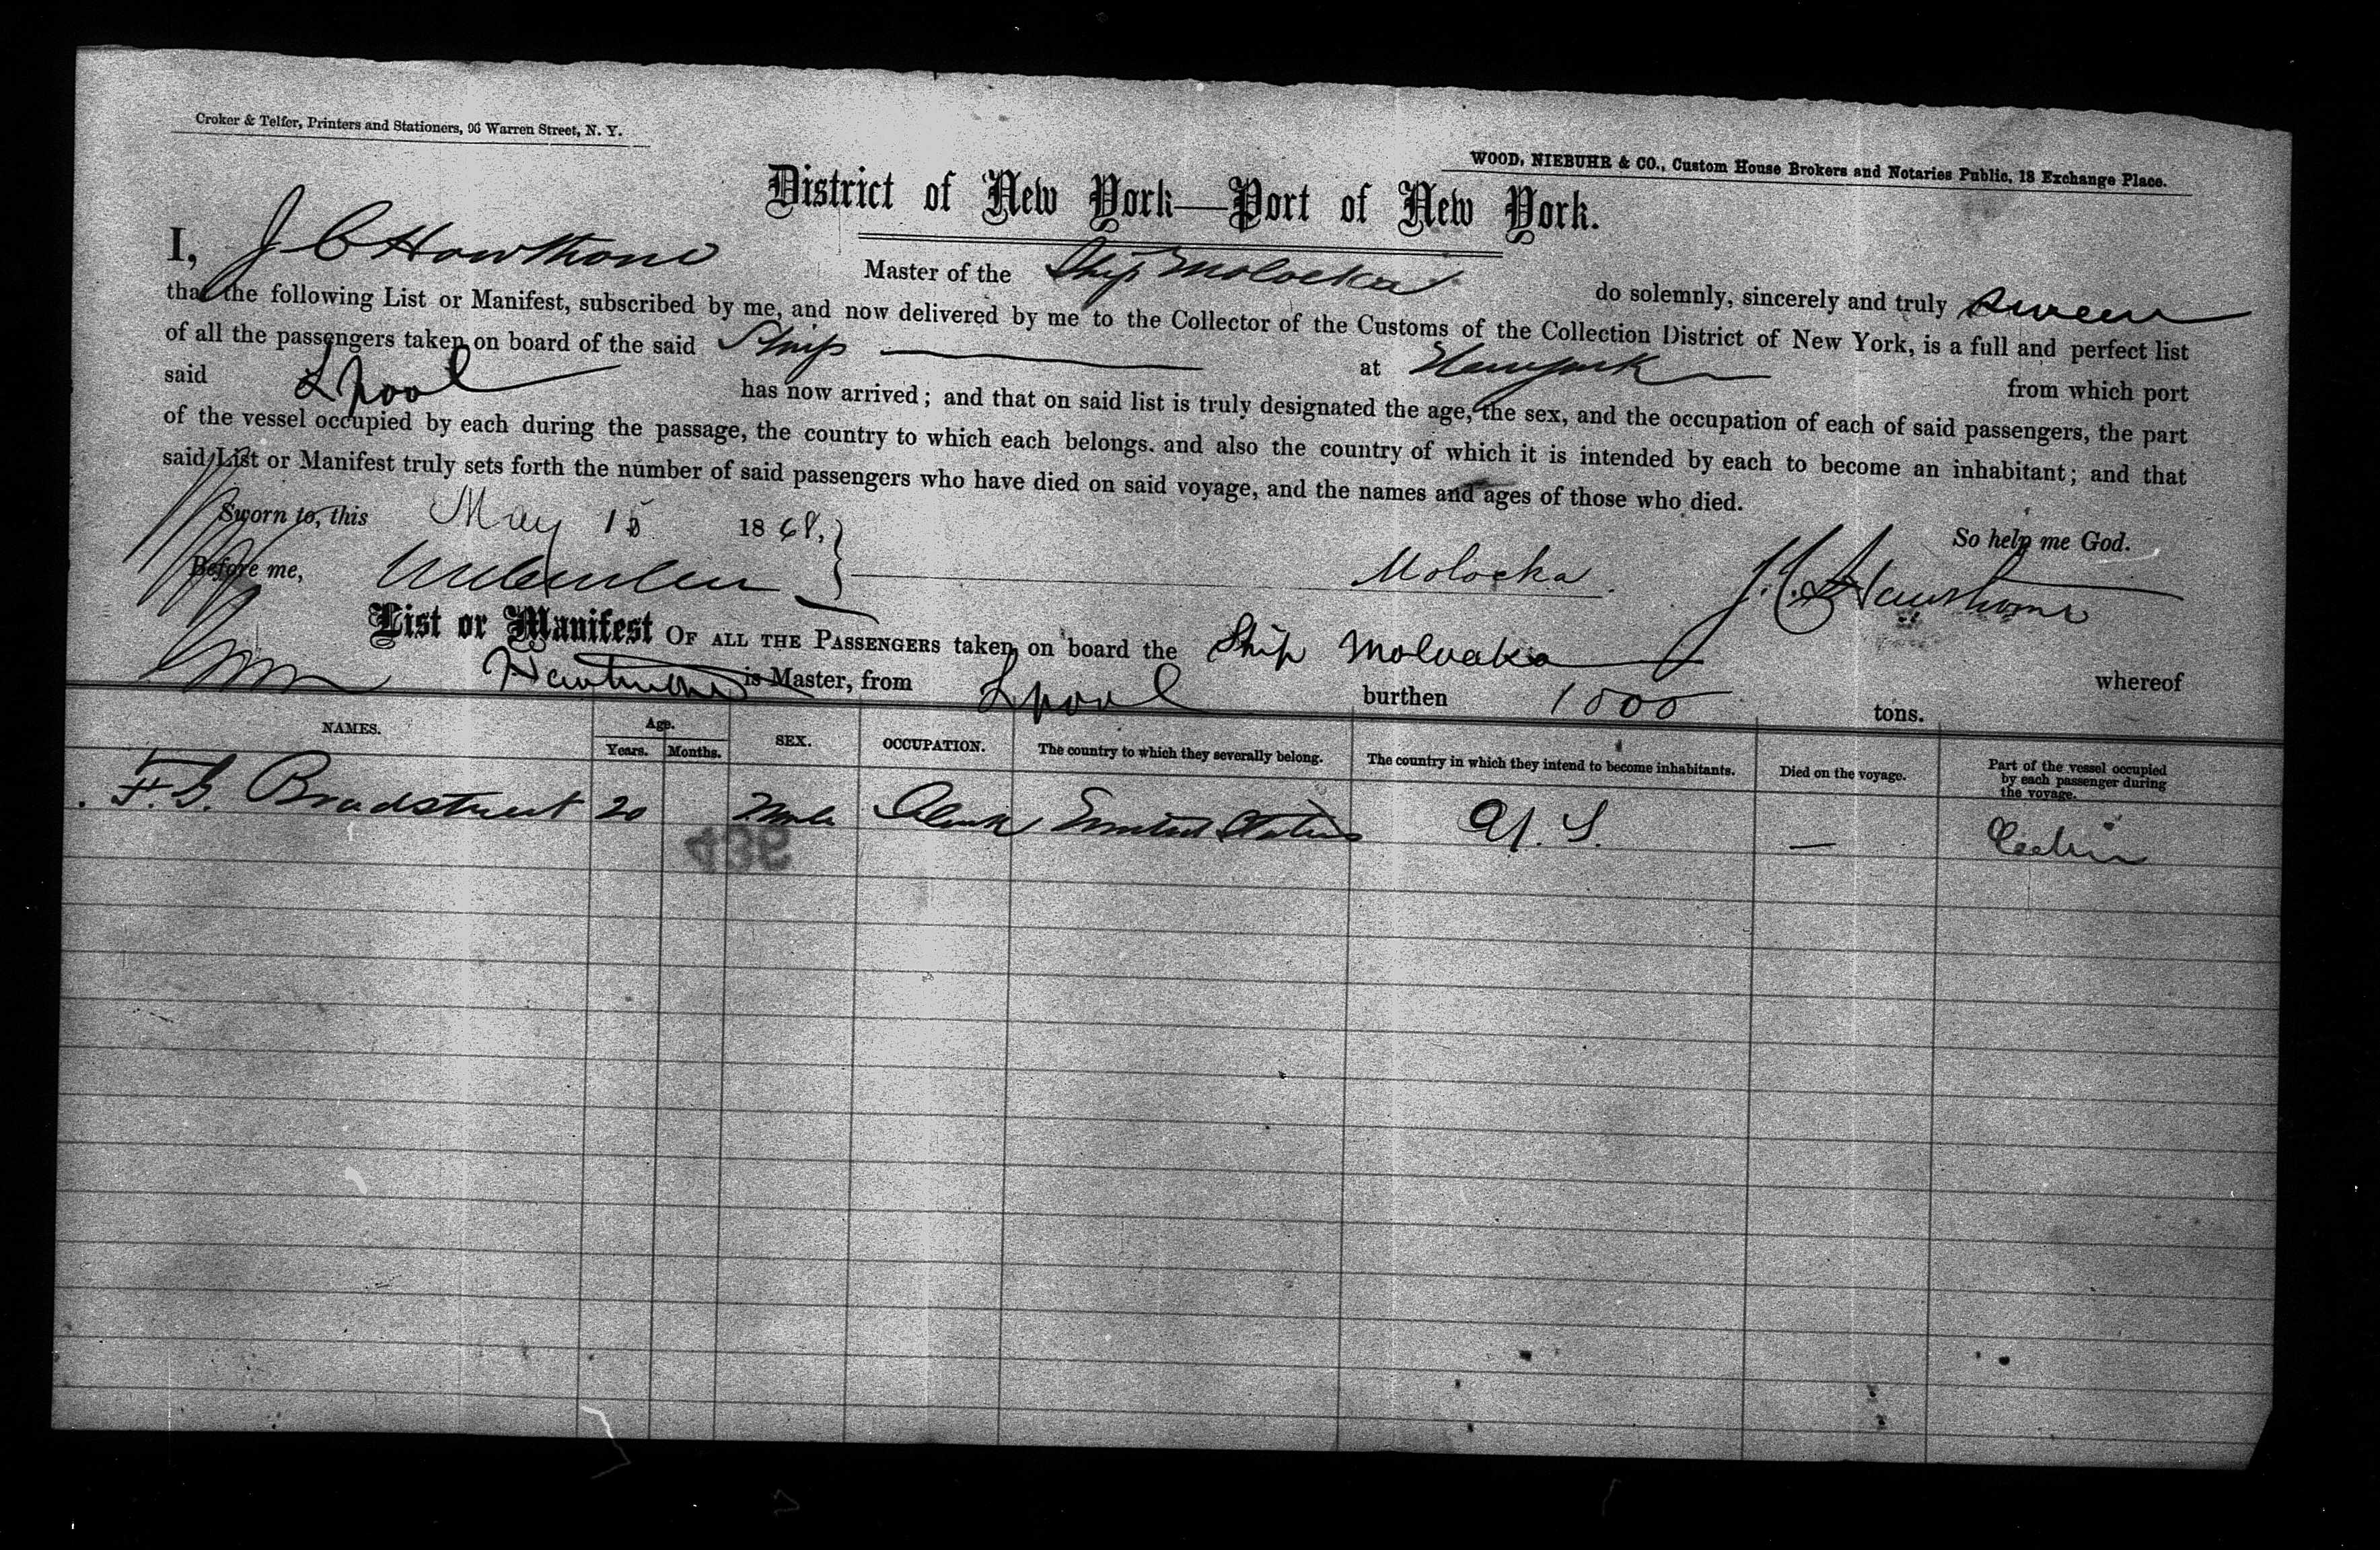 Croker & Telfer, Printers and Stationers, 96 Warren Street, N. Y.
WOOD, NIEBUHR & CO., Custom House Brokers and Notaries Public, 18 Exchange Place.
District of New York—Port of New York.
I, J C Hawthorne Master of the Ship Molocka do solemnly, sincerely and truly swear
that the following List or Manifest, subscribed by me, and now delivered by me to the Collector of the Customs of the Collection District of New York, is a full and perfect list
of all the passengers taken on board of the said Ship — at New york from which port
said L pool has now arrived; and that on said list is truly designated the age, the sex, and the occupation of each of said passengers, the part
of the vessel occupied by each during the passage, the country to which each belongs. and also the country of which it is intended by each to become an inhabitant; and that
said List or Manifest truly sets forth the number of said passengers who have died on said voyage, and the names and ages of those who died.
Sworn to, this May 15 1868, So help me God.
Before me, Molocka J. C. Hawthorne
List or Manifest OF ALL THE PASSENGERS taken on board the Ship Molocka whereof
Hawthorne is Master, from L pool burthen 1000 tons.
NAMES. Age. Years. Months. SEX. OCCUPATION. The country to which they severally belong. The country in which they intend to become inhabitants. Died on the voyage. Part of the vessel occupied by each passenger during the voyage.
F. G. Bradstreet 20 Male Clerk United States U. S. — Cabin
436